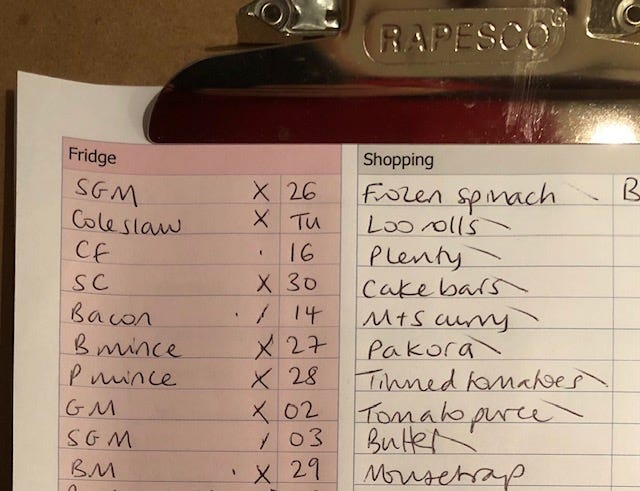 RAPESCO
Fridge
SGM X 26
Coleslaw X Tu
CF . 16
SC X 30
Bacon . / 14
B mince X 27
P mince X 28
GM X 02
SGM / 03
BM . X 29
Shopping
Frozen spinach \ B
Loo rolls \
Plenty \
Cake bars \
M+S curry \
Pakora \
Tinned tomatoes \
Tomato puree \
Butter \
Mousetrap